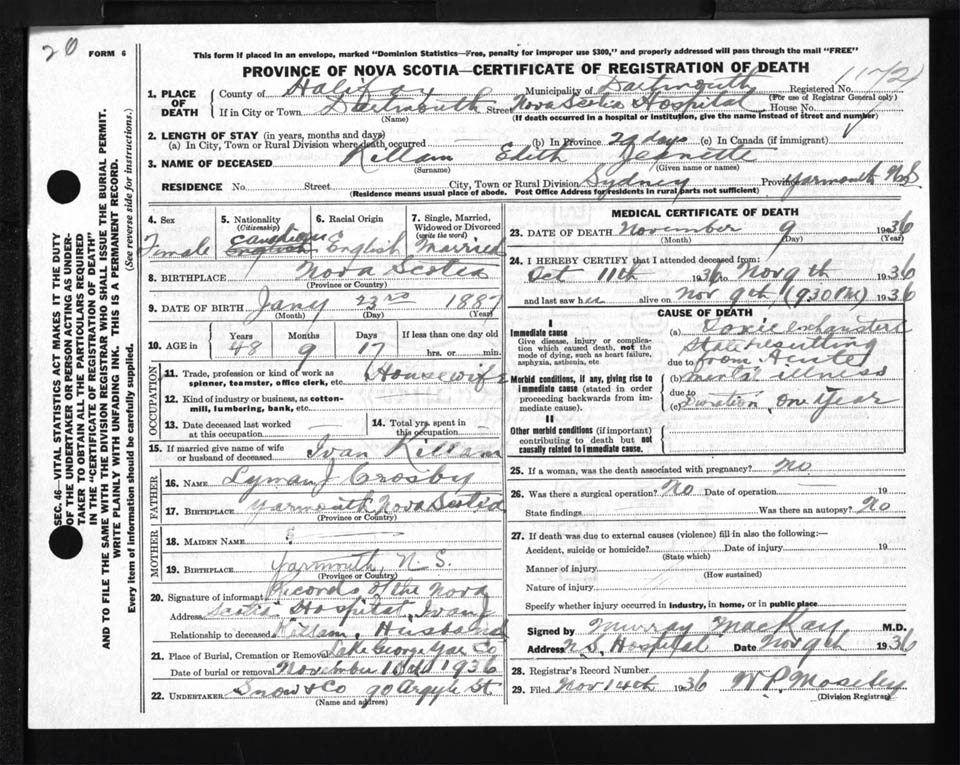 20 FORM 6
This form if placed in an envelope, marked "Dominion Statistics—Free, penalty for improper use $300," and properly addressed will pass through the mail "FREE"
PROVINCE OF NOVA SCOTIA—CERTIFICATE OF REGISTRATION OF DEATH
1. PLACE OF DEATH
County of Halifax Municipality of Dartmouth Registered No.
(For use of Registrar General only)
If in City or Town Dartmouth Street Nova Scotia Hospital House No.
(Name) (If death occurred in a hospital or institution, give the name instead of street and number)
2. LENGTH OF STAY (in years, months and days)
(a) In City, Town or Rural Division where death occurred (b) In Province 29 days (c) In Canada (if immigrant)
3. NAME OF DECEASED Killam Edith
(Surname) (Given name or names)
RESIDENCE No. Street City, Town or Rural Division Sydney Province Yarmouth N.S
(Residence means usual place of abode. Post Office Address for residents in rural parts not sufficient)
4. Sex Female
5. Nationality (Citizenship) English
6. Racial Origin English
7. Single, Married, Widowed or Divorced (write the word) Married
8. BIRTHPLACE Nova Scotia
(Province or Country)
9. DATE OF BIRTH Jany 23rd 1887
(Month) (Day) (Year)
10. AGE in Years 48 Months 9 Days 17 If less than one day old hrs. or min.
OCCUPATION
11. Trade, profession or kind of work as spinner, teamster, office clerk, etc. Housewife
12. Kind of industry or business, as cotton-mill, lumbering, bank, etc.
13. Date deceased last worked at this occupation 14. Total yrs. spent in this occupation
15. If married give name of wife or husband of deceased Ivan Killam
FATHER
16. NAME Lyman J Crosby
17. BIRTHPLACE Yarmouth Nova Scotia
(Province or Country)
MOTHER
18. MAIDEN NAME
19. BIRTHPLACE Yarmouth, N.S.
(Province or Country)
20. Signature of informant Records of the Nova
Address Scotia Hospital, Ivan J
Relationship to deceased Killam, Husband
21. Place of Burial, Cremation or Removal Lake George Yar Co
Date of burial or removal November 1936
22. UNDERTAKER Snow & Co 90 Argyle St
(Name and address)
MEDICAL CERTIFICATE OF DEATH
23. DATE OF DEATH November 9 1936
(Month) (Day) (Year)
24. I HEREBY CERTIFY that I attended deceased from:
Oct 11th 1936 to Nov 9th 1936
and last saw her alive on Nov 9th (9 30 PM) 1936
CAUSE OF DEATH
I
Immediate cause
Give disease, injury or complication which caused death, not the mode of dying, such as heart failure, asphyxia, asthenia, etc.
(a) Toxic exhaustive
State resulting
due to from Acute
Morbid conditions, if any, giving rise to immediate cause (stated in order proceeding backwards from immediate cause).
(b) mental illness
due to
(c) Duration, One Year
II
Other morbid conditions (if important) contributing to death but not causally related to immediate cause.
25. If a woman, was the death associated with pregnancy? no
26. Was there a surgical operation? No Date of operation 19
State findings Was there an autopsy? No
27. If death was due to external causes (violence) fill in also the following:—
Accident, suicide or homicide? Date of injury 19
(State which)
Manner of injury
(How sustained)
Nature of injury
Specify whether injury occurred in industry, in home, or in public place
Signed by Murray MacKay M.D.
Address N.S. Hospital Date Nov 9th 1936
28. Registrar's Record Number
29. Filed Nov 14th 1936 W P Moseley
(Division Registrar)
SEC. 46—VITAL STATISTICS ACT MAKES IT THE DUTY
OF THE UNDERTAKER OR PERSON ACTING AS UNDER-
TAKER TO OBTAIN ALL THE PARTICULARS REQUIRED
IN THE "CERTIFICATE OF REGISTRATION OF DEATH"
AND TO FILE THE SAME WITH THE DIVISION REGISTRAR WHO SHALL ISSUE THE BURIAL PERMIT.
WRITE PLAINLY WITH UNFADING INK. THIS IS A PERMANENT RECORD.
Every item of information should be carefully supplied. (See reverse side for instructions.)